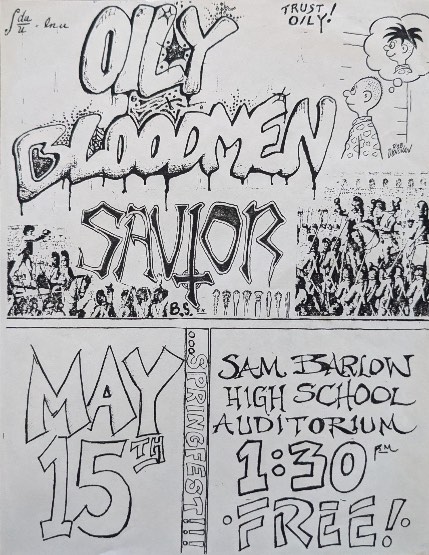 ∫ du/u · ln u
TRUST
OILY!
OILY
BLOODMEN
SAVIOR
B.S.
MAY
15TH
...SPRINGFEST!!!!
SAM BARLOW
HIGH SCHOOL
AUDITORIUM
1:30 PM
·FREE!·